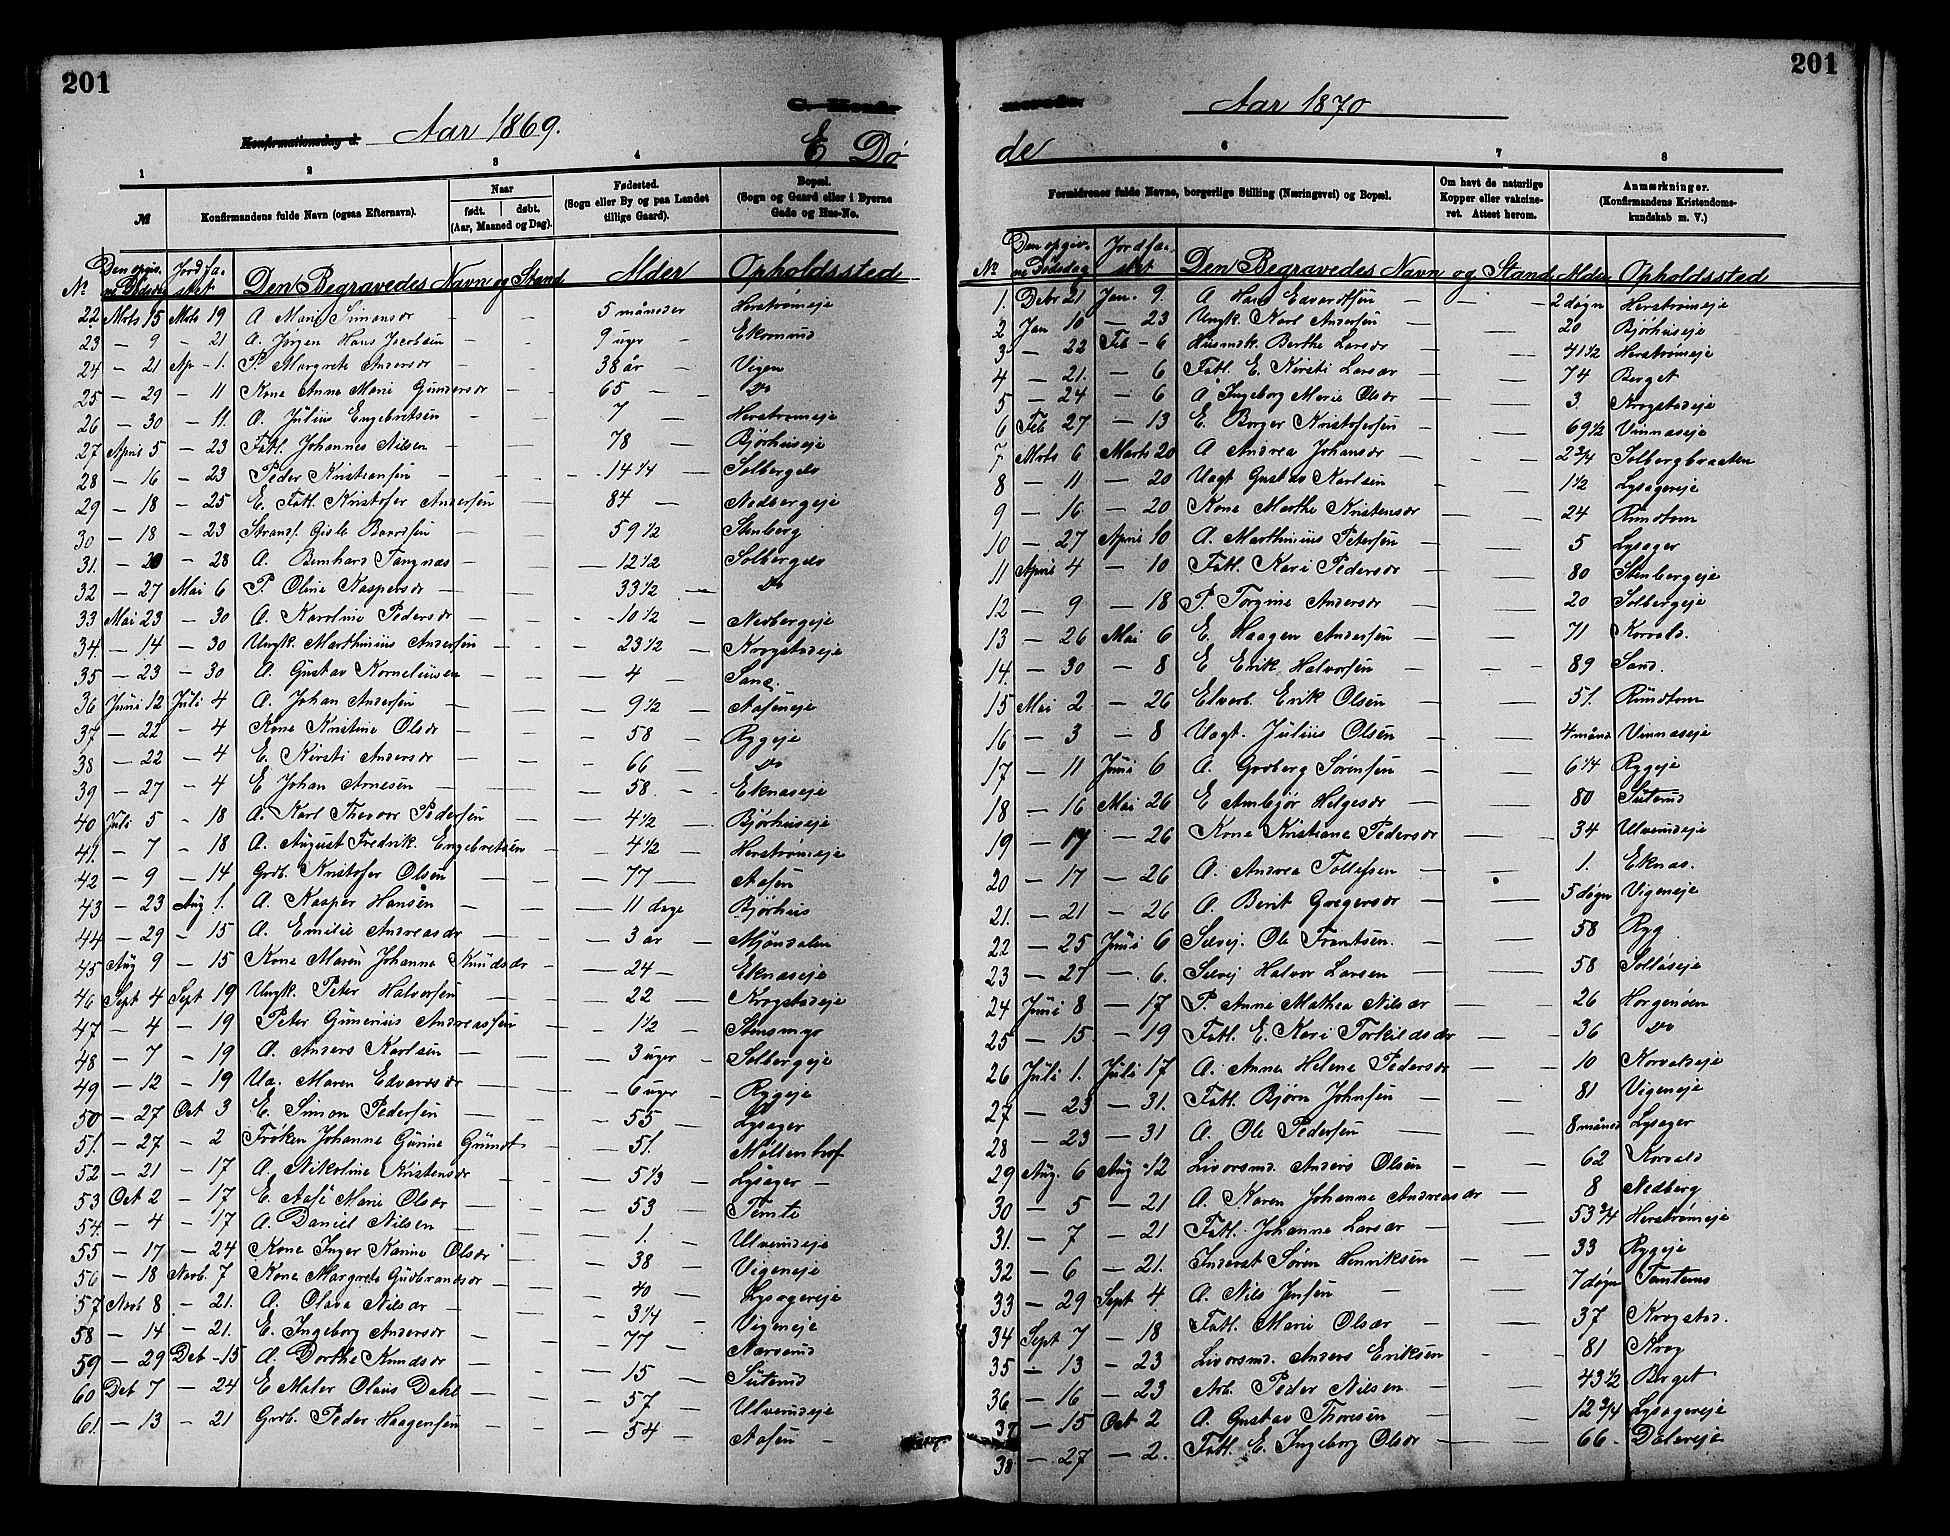 201
C. Konfir-
Konfirmationsdag d. Aar 1869.
E Dø
1 2 3 4
№ Konfirmandens fulde Navn (ogsaa Efternavn). Naar født. døbt. (Aar, Maaned og Dag). Fødested. (Sogn eller By og paa Landet tillige Gaard). Bopæl. (Sogn og Gaard eller i Byerne Gade og Hus-No.
No Den opgiv. Jordfæ- Den Begravedes Navn og Stand Alder Opholdssted
ne Dødsdag stet
22 Mrts 15 Mrts 19 A Marie Simensdr — 5 måneder Herstrømeje
23 — 9 — 21 A. Jørgen Hans Jacobsen — 9 uger Ekornrud
24 — 21 Ap — 1. P. Margrete Andersdr — 38 år Vigen
25 — 29 — 11 Kone Anne Marie Gundersdr — 65 — Do
26 — 30 — 11. A. Julius Engebretsen — 7 Herstrømeje
27 April 5 — 23 Fatt. Johannes Nilsen — 78 — Bjørhuseje
28 — 16 — 23 Peder Kristiansen — 14 1/4 — Solbergelv
29 — 18 — 25 E. Fatt. Kristofer Andersen — 84 — Nedbergeje
30 — 18 — 23 Strands. Gisle Baardsen — 59 1/2 Stenberg
31. — 20 — 28 A. Bernhard Tangnæs — 12 1/2 Solbergelv
32 — 27 Mai 6 P. Oline Kaspersdr — 33 1/2 — Do
33 Mai 23 — 30 A. Karoline Pedersdr — 10 1/2 — Nedbergeje
34. — 14 — 30 Ungk. Marthinius Andersen — 23 1/2 — Krogstadeje
35 — 23 — 30 A. Gustav Korneliusen — 4 — Sand
36 Juni 12 Juli 4 A. Johan Andersen — 9 1/2 — Aaseneje
37 — 22 — 4 Kone Kristine Olsdr — 58 — Ryggeje
38 — 22 — 4 E. Kirsti Andersdr — 66 — Do
39 — 27 — 4 E Johan Arnesen — 58. — Eknaseje
40 Juli 5 — 18 A. Karl Thevor Pedersen — 4 1/2 — Bjørhuseje
41. — 7 — 18 A. August Fredrik Engebretsen — 4 1/2 — Herstrømeje
42 — 9 — 14 Grdb. Kristofer Olsen — 77 — Aasen
43 — 23 Aug 1. A. Kasper Hansen — 11 dage Bjørhus
44 — 29 — 15 A. Emilie Andreasdr — 3 år — Mjøndalen
45 Aug 9 — 15 Kone Maren Johanne Knudsdr — 24 — Eknaseje
46 Sept 4 Sept 19 Ungk. Peter Halvorsen — 22 — Krogstadeje
47 — 4 — 19 Peter Gunerius Andreassen — 1 1/2 — Stensmyr
48 — 7 — 19 A. Anders Karlsen — 3 uger — Solbergeje
49 — 12 — 19 Ua. Maren Edvardsdr — 6 uger Ryggeje
50 — 27 Oct 3 E. Simon Pedersen — 55 — Lysager
51. — 27 — 2 Frøken Johanne Gurine Gründt — 51. — Møllenhof
52 — 21 — 17 A. Nikoline Kristensdr — 5 1/3 — Lysager —
53 Oct 2 — 17. E. Aase Marie Olsdr — 53 — Temte
54. — 4 — 17 A. Daniel Nilsen — 1. — Ulverudeje
55 — 17 — 24 Kone Inger Karine Olsdr — 38 — Vigeneje
56 — 18 Novb. 7 Kone Margrete Gudbrandsdr — 40 — Lysagereje
57 Novb 8 — 21. A. Olava Nilsdr — 3 1/4 — Vigeneje
58 — 14 — 21. E. Ingeborg Andersdr — 77 — Nærsrud
59 — 29 Det — 15 A. Dorthe Knudsdr — 15 — Sutterud
60 Det 7 — 24 E Maler Olaus Dahl — 57 — Ulverudeje
61. — 13 — 21 Grdb. Peder Haagensen — 54 — Aasen
201
merede.
Aar 1870
de
6 7 8
Formidrenes fulde Navne, borgerlige Stilling (Næringsvei) og Bopæl. Om havt de naturlige Kopper eller vakcineret. Attest herom. Anmærkninger. (Konfirmandens Kristendomskundskab m. V.)
No Den opgiv- Jordfæ- Den Begravedes Navn og Stand Alder Opholdssted
ne Dødsdag stet
1. Debr 21 Jan. 9. A Hans Edvardsen — 2 døgn Herstrømeje
2 Jan 16 — 23 Ungk. Karl Andersen — 20 Bjørhuseje
3 — 22 Feb — 6 Husmdk. Berthe Larsdr — 41 1/2 Herstrømeje
4 — 21. — 6 Fatt. E. Kirsti Larsdr — 74 Berget
5 — 24 — 6 A Ingeborg Marie Olsdr — 3 Krogstadeje
6 Feb 27 — 13 E. Borger Kristofersen — 69 1/2 Vinnaseje
7 Mrts 6 Marts 20 A Andrea Johansdr — 2 3/4 Solbergbraaten
8 — 11 — 20 Uagt Gustav Karlsen — 1 1/2 Lysagereje
9 — 16 — 20 Kone Marthe Kristensdr — 24 Rundtom
10 — 27 April 10 A. Marthinius Petersen — 5 Lysager
11 April 4 — 10 Fatt. Kari Pedersdr — 80 Stenbergeje
12 — 9 — 18 P. Torgine Andersdr — 20 Solbergeje
13 — 26 Mai 6 E. Haagen Andersen — 71 Korvald.
14. — 30 — 8 E Erik Halvorsen — 89 Sand.
15 Mai 2 — 26 Elverb. Erik Olsen — 51. Rundtom
16 — 3 — 8 Uagt. Julius Olsen — 4 månd Vinnaseje
17 — 11 Juni 6 A. Gudberg Sørensen — 6 1/4 Ryggeje
18 — 16 Mai 26 E Ambjør Helgesdr — 80 Sutterud
19 — 17 — 26 Kone Kristiane Pedersdr — 34 Ulverudeje
20 — 17 — 26 A. Andrea Tollefsen — 1. Eknas.
21. — 21 — 26 A. Berit Gregersdr — 5 døgn Vigeneje
22 — 25 Juni 6 Selvej. Ole Frantsen. — 58 Ryg
23 — 27 — 6. Selvej Halvor Larsen — 58 Solløseje
24 Juni 8 — 17 P. Anne Mathea Nilsdr — 26 Horgenøen
25 — 15. — 19 Fatt. E. Kari Torkildsdr — 36 Do
26 Juli 1. Juli 17 A. Anne Helene Pedersdr — 10 Korvaldeje
27 — 23 — 31. Fatt. Bjørn Johnsen — 81 Vigeneje
28 — 23 — 31 A. Ole Pedersen — 8 måned Lysager
29 Aug. 6 Aug 12 Livorsmd. Anders Olsen — 62 Korvald
30 — 5 — 21 A. Karen Johanne Andreasdr — 8 Nedberg
31. — 7 — 21 Fatt. Johanne Larsdr — 53 3/4 Herstrømeje
32 — 6 — 21. Inderst Søren Henriksen — 33 Ryggeje
33 — 29 Sept 4 A. Nils Jensen — 7 døgn Temterud
34 Sept 7 — 18 Fatt. Marie Olsdr — 37 Krogstad.
35 — 13 — 23 Livorsmd. Anders Eriksen — 81 Krog
36 — 16 — 23 Arb. Peder Nilsen — 43 1/2 Berget
37 — 15 Oct 2 A. Gustav Thoresen — 12 3/4 Lysagereje
38 — 27 — 2. Fatt. E. Ingeborg Olsdr — 66 — Daleveje